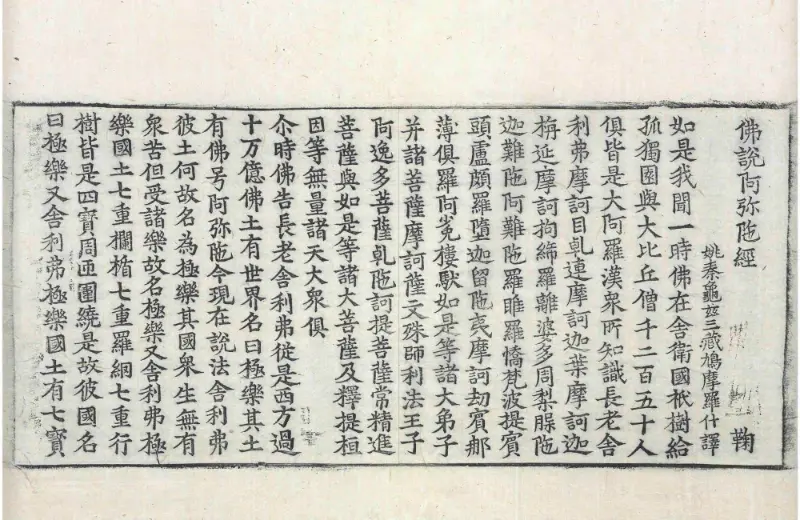 佛說阿弥陁經　鞠
姚秦龜玆三藏鳩摩羅什譯
如是我聞一時佛在舍衛國祇樹給
孤獨園與大比丘僧千二百五十人
俱皆是大阿羅漢衆所知識長老舍
利弗摩訶目乹連摩訶迦葉摩訶迦
栴延摩訶拘絺羅離婆多周梨槃陁
迦難陁阿難陁羅睺羅憍梵波提賓
頭盧頗羅墮迦留陁夷摩訶劫賓那
薄俱羅阿㝹樓馱如是等諸大弟子
并諸菩薩摩訶薩文殊師利法王子
阿逸多菩薩乹陁訶提菩薩常精進
菩薩與如是等諸大菩薩及釋提桓
因等無量諸天大衆俱
尒時佛告長老舍利弗從是西方過
十万億佛土有世界名曰極樂其土
有佛号阿弥陁今現在說法舍利弗
彼土何故名為極樂其國衆生無有
衆苦但受諸樂故名極樂又舍利弗極
樂國土七重欄楯七重羅網七重行
樹皆是四寶周匝圍繞是故彼國名
曰極樂又舍利弗極樂國土有七寶